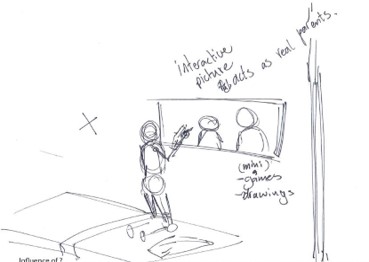 interactive
picture
acts as real parents.
(mini)
-games
-drawings
Influence of ?